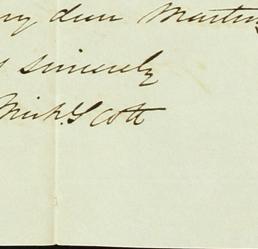 my dear Martin
sincerely
Mich. Scott